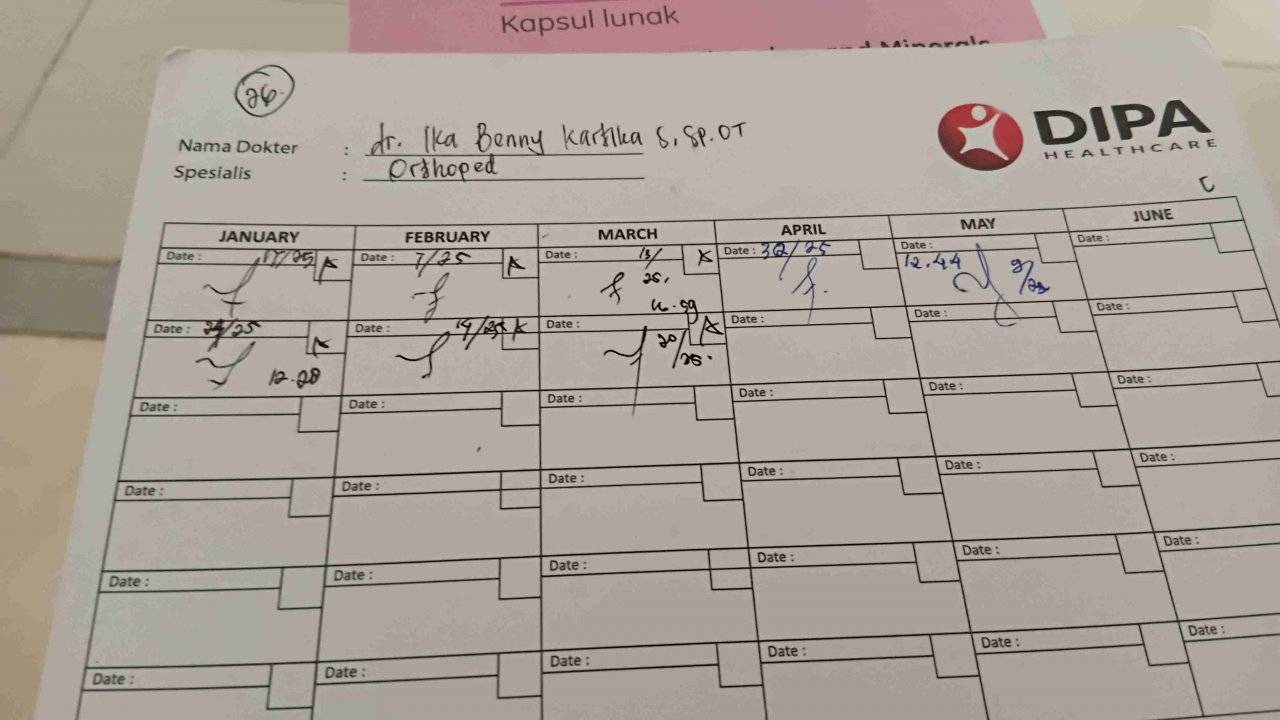 Kapsul lunak
and Minerals
26
DIPA
HEALTHCARE
Nama Dokter : dr. Ika Benny Kartika S, Sp.OT
Spesialis : Orthoped
C
JANUARY FEBRUARY MARCH APRIL MAY JUNE
Date : 17/25 A Date : 7/25 A Date : 13/25. K Date : 30/25 Date : Date :
12.44
Date : 24/25 A Date : 19/25 K Date : 20/25. A Date : Date : Date :
12.28
Date : Date : Date : Date : Date : Date :
Date : Date : Date : Date : Date : Date :
Date : Date : Date : Date : Date : Date :
Date : Date : Date : Date : Date : Date :